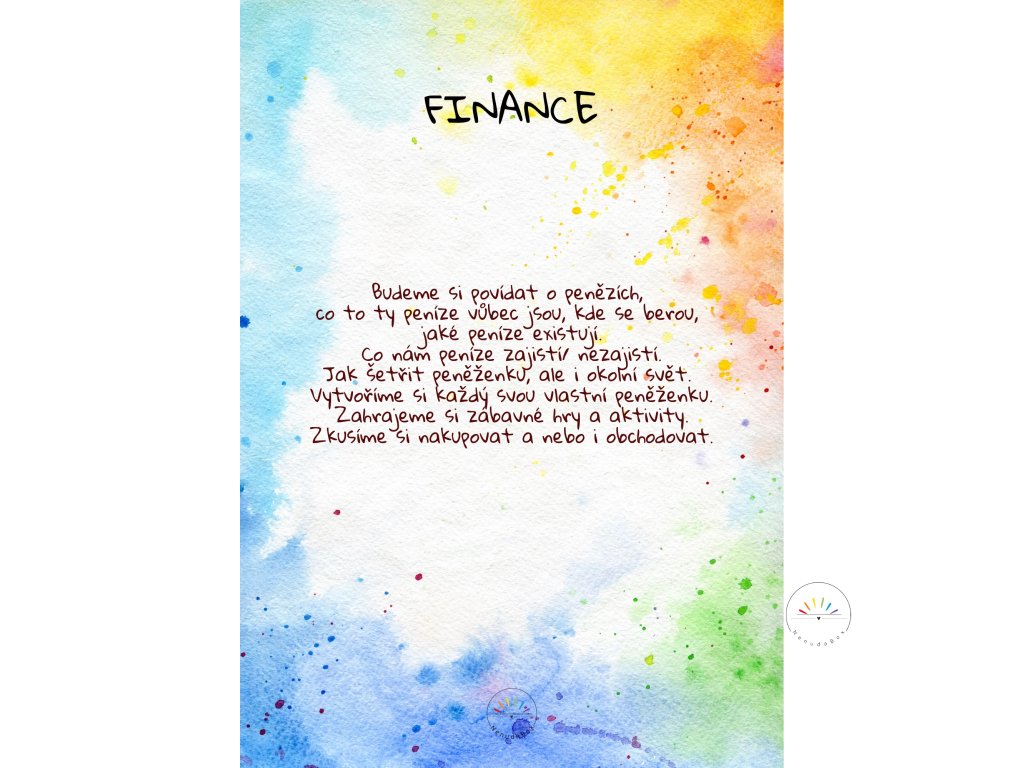 FINANCE
Budeme si povídat o penězích,
co to ty peníze vůbec jsou, kde se berou,
jaké peníze existují.
Co nám peníze zajistí/ nezajistí.
Jak šetřit peněženku, ale i okolní svět.
Vytvoříme si každý svou vlastní peněženku.
Zahrajeme si zábavné hry a aktivity.
Zkusíme si nakupovat a nebo i obchodovat.
NenudaBox
NenudaBox